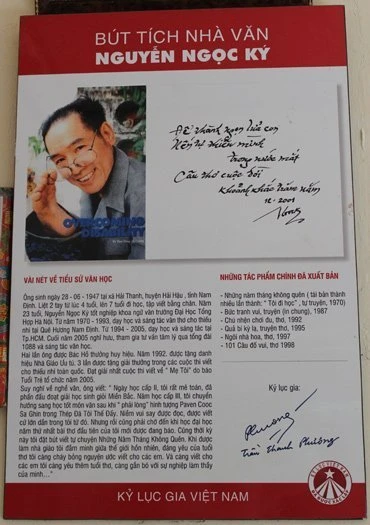 BÚT TÍCH NHÀ VĂN
NGUYỄN NGỌC KÝ
Để thành ngọn lửa con
Nến tự thiêu mình
trong nước mắt
Câu thơ cuộc đời
khoảnh khắc trăm năm
12. 2001
VÀI NÉT VỀ TIỂU SỬ VĂN HỌC
Ông sinh ngày 28 - 06 - 1947 tại xã Hải Thanh, huyện Hải Hậu , tỉnh Nam
Định. Liệt 2 tay từ lúc 4 tuổi, lên 7 tuổi đi học, tập viết bằng chân. Năm
23 tuổi, Nguyễn Ngọc Ký tốt nghiệp khoa ngữ văn trường Đại Học Tổng
Hợp Hà Nội. Từ năm 1970 - 1993, dạy học và sáng tác văn thơ cho thiếu
nhi tại Quê Hương Nam Định. Từ 1994 - 2005, dạy học và sáng tác tại
Tp.HCM. Cuối năm 2005 nghỉ hưu, tham gia tư vấn tâm lý qua tổng đài
1088 và sáng tác văn học.
Hai lần ông được Bác Hồ thưởng huy hiệu. Năm 1992, được tặng danh
hiệu Nhà Giáo Ưu tú. 3 lần ông được tặng giải thưởng trong các cuộc thi viết
cho thiếu nhi toàn quốc. Đạt giải nhất cuộc thi viết về " Mẹ Tôi" do báo
Tuổi Trẻ tổ chức năm 2005.
Suy nghĩ về nghề văn, ông viết: " Ngày học cấp II, tôi rất mê toán, đã
phấn đấu đoạt giải học sinh giỏi Miền Bắc. Năm học cấp III, tôi chuyển
hướng sang học tốt môn văn sau khi " phải lòng" hình tượng Paven Cooc
Sa Ghin trong Thép Đã Tôi Thế Đấy. Niềm vui say được đọc, được viết
cứ lớn dần trong tôi từ đó. Nhưng rồi cũng phải chờ đến khi học đại học
năm thứ nhất bài thơ đầu tiên của tôi mới được đăng báo. Cũng thời kỳ
này tôi đặt bút viết tự chuyện Những Năm Tháng Không Quên. Khi được
làm nhà giáo tôi đắm mình giữa thế giới hồn nhiên, đáng yêu của tuổi
thơ tôi càng cháy bỏng nguyện ước viết cho các em. Và càng viết cho
các em tôi càng yêu thêm tuổi thơ, càng gắn bó với sự nghiệp làm thầy
của mình..."
NHỮNG TÁC PHẨM CHÍNH ĐÃ XUẤT BẢN
- Những năm tháng không quên ( tái bản thành
nhiều lần thành: " Tôi đi học" , tự truyện, 1970)
- Bức tranh vui, truyện (in chung), 1987
- Chú nhện chơi đu, thơ, 1992
- Quả bí kỳ lạ, truyện thơ, 1995
- Ngôi nhà hoa, thơ, 1997
- 101 Câu đố vui, thơ 1998
Kỷ lục gia:
Trần Thanh Phương
KỶ LỤC GIA VIỆT NAM